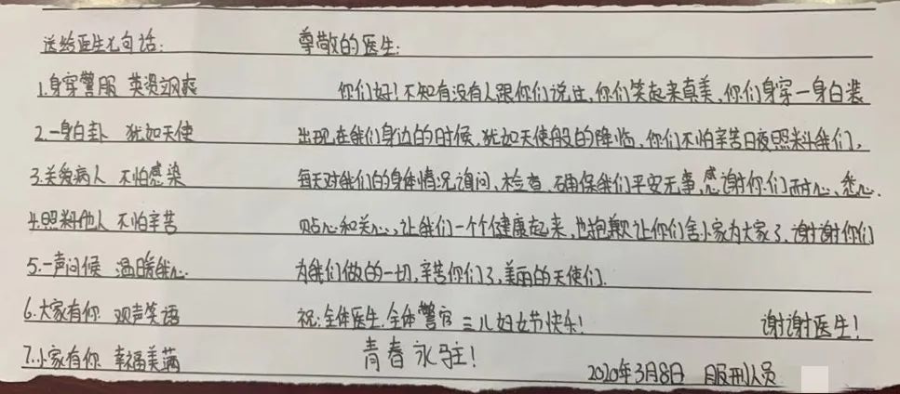 送给医生七句话:
1.身穿警服 英姿飒爽
2.一身白卦 犹如天使
3.关爱病人 不怕感染
4.照料他人 不怕辛苦
5.一声问候 温暖我心
6.大家有你 欢声笑语
7.小家有你 幸福美满
尊敬的医生:
你们好!不知有没有人跟你们说过,你们笑起来真美,你们身穿一身白装
出现在我们身边的时候,犹如天使般的降临,你们不怕辛苦日夜照料我们,
每天对我们的身体情况询问,检查,确保我们平安无事,感谢你们耐心、悉心、
贴心和关心,让我们一个个健康起来,也抱歉让你们舍小家为大家了,谢谢你们
为我们做的一切,辛苦你们了,美丽的天使们.
祝:全体医生.全体警官 三八妇女节快乐! 谢谢医生!
青春永驻!
2020年3月8日 服刑人员